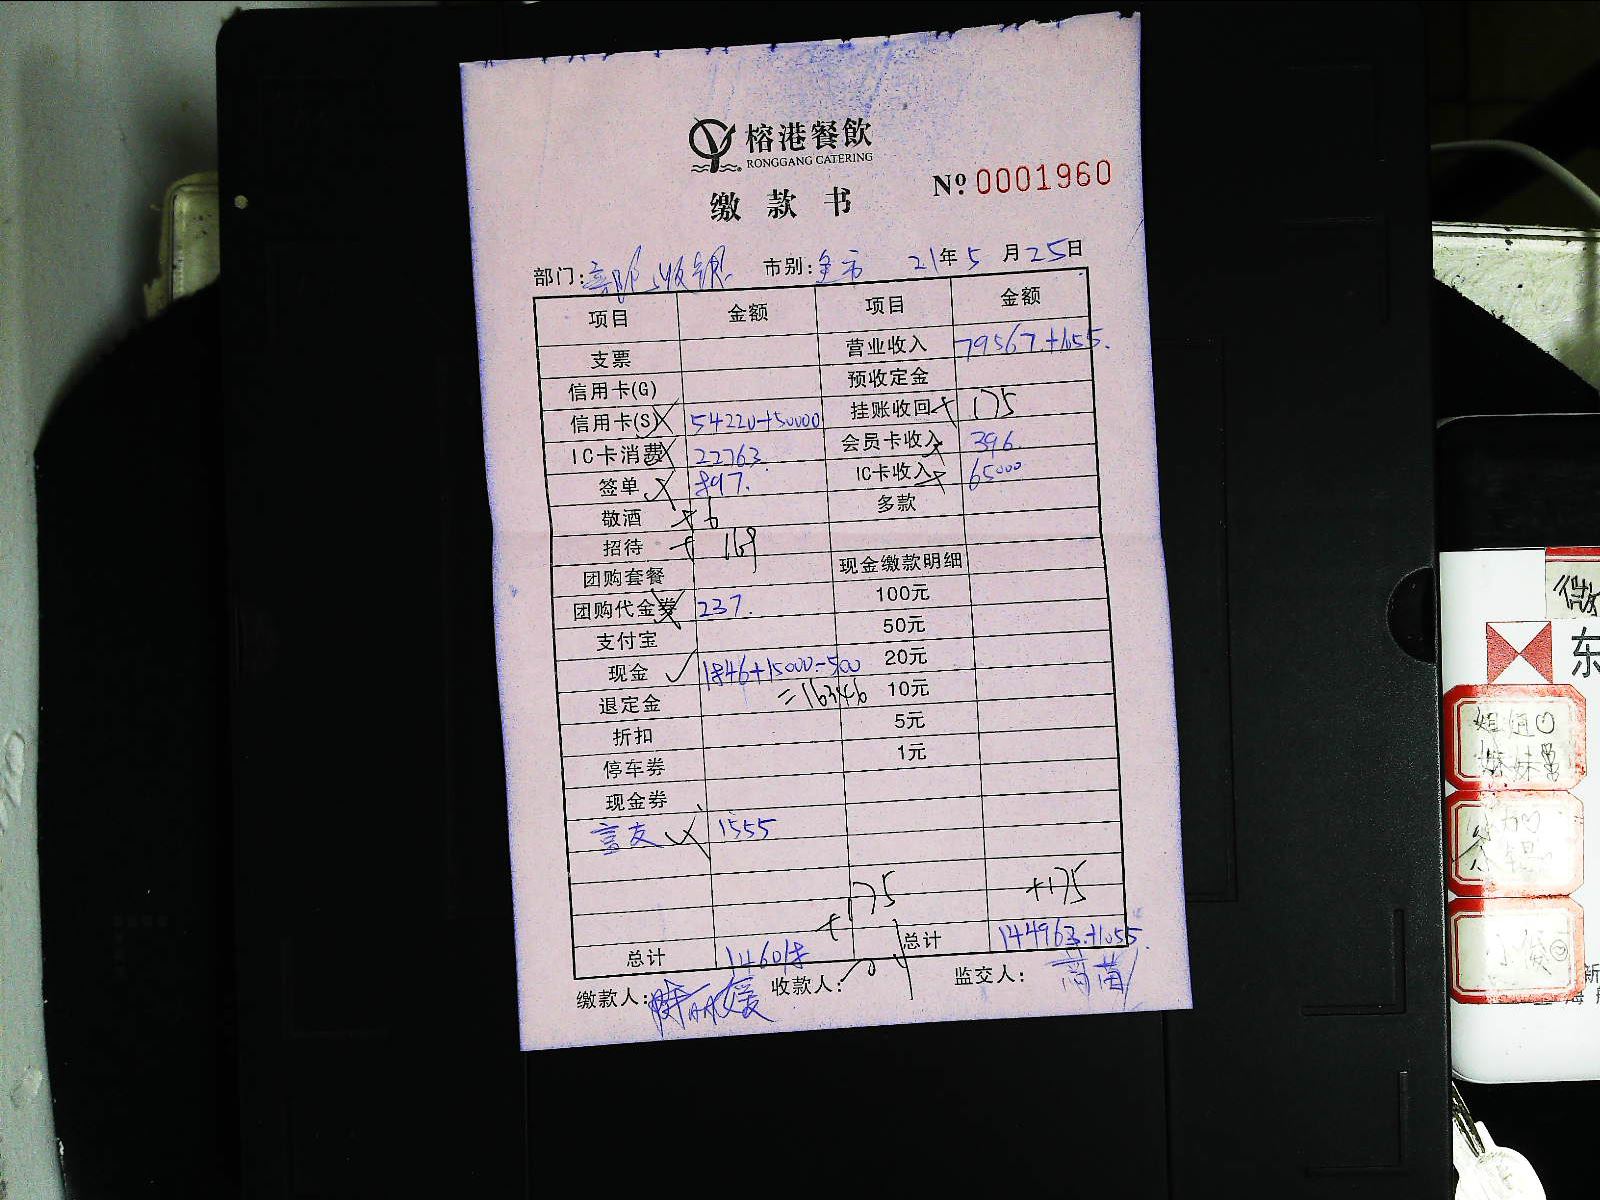 榕港餐飲
RONGGANG CATERING
缴款书
№ 0001960
部门: 收银 市别: 全市 21年5月25日
项目 金额 项目 金额
支票 营业收入 79567.+1055.
信用卡(G) 预收定金
信用卡(S) 54220+50000 挂账收回 + 175
IC卡消费 22763. 会员卡收入 396.
签单 897. IC卡收入 65000
敬酒 + 6 多款
招待 + 169
团购套餐 现金缴款明细
团购代金券 237. 100元
支付宝 50元
现金 ✓ 1846+15000-500 20元
退定金 =16346 10元
折扣 5元
停车券 1元
现金券
1555
+175 +175
总计 146018 总计 144963.+1055.
缴款人: 收款人: 监交人:
东